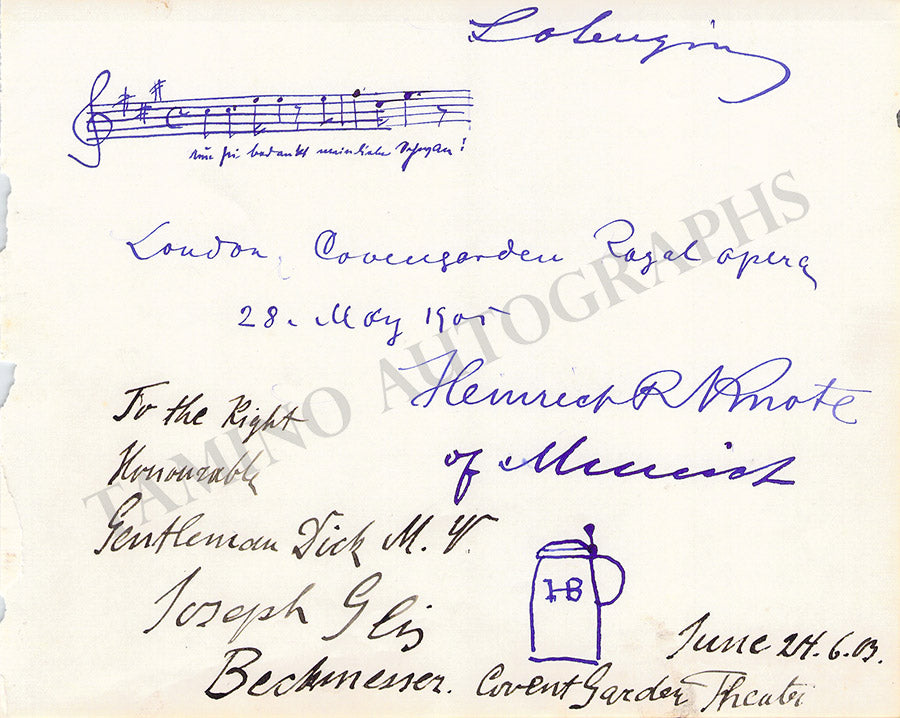 Lohengrin
nun sei bedankt mein lieber Schwan!
London, Covengarden Royal opera
28. May 1905
Heinrich Knote
of Munich
To the Right
Honourable
Gentleman Dick M. W.
HB
Joseph Geis
Beckmesser. Covent Garden Theater
June 24.6.03.
TAMINO AUTOGRAPHS